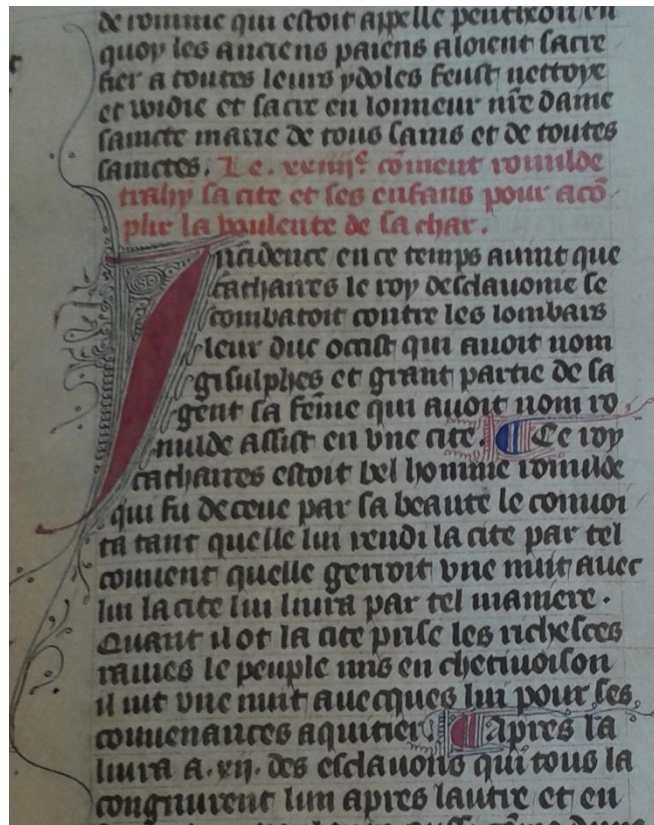 de romme qui estoit appelle pentheon en
quoy les anciens paiens aloient sacre
fier a toutes leurs ydoles feust nettoye
et widie et sacre en lonneur nr̄e dame
saincte marie de tous sains et de toutes
sainctes. Le. xxiiij.e cōment romilde
trahy sa cite et ses enfans pour acō
plir la voulente de sa char.
Incidence en ce temps auint que
cathanes le roy desclauonie se
combatoit contre les lombars
leur duc occist qui auoit nom
gisulphes et grant partie de sa
gent sa fēme qui auoit nom ro
milde assist en vne cite. Ce roy
cathanes estoit bel homme romilde
qui fu deceue par sa beaute le conuoi
ta tant quelle lui rendi la cite par tel
conuent quelle gerroit vne nuit auec
lui la cite lui liura par tel maniere.
Quant il ot la cite prise les richesces
rauies le peuple mis en chetiuoison
il iut vne nuit auecques lui pour ses
conuenances aquitier Apres la
liura a .xij. des esclauons qui tous la
congnurent lun apres lautre et en